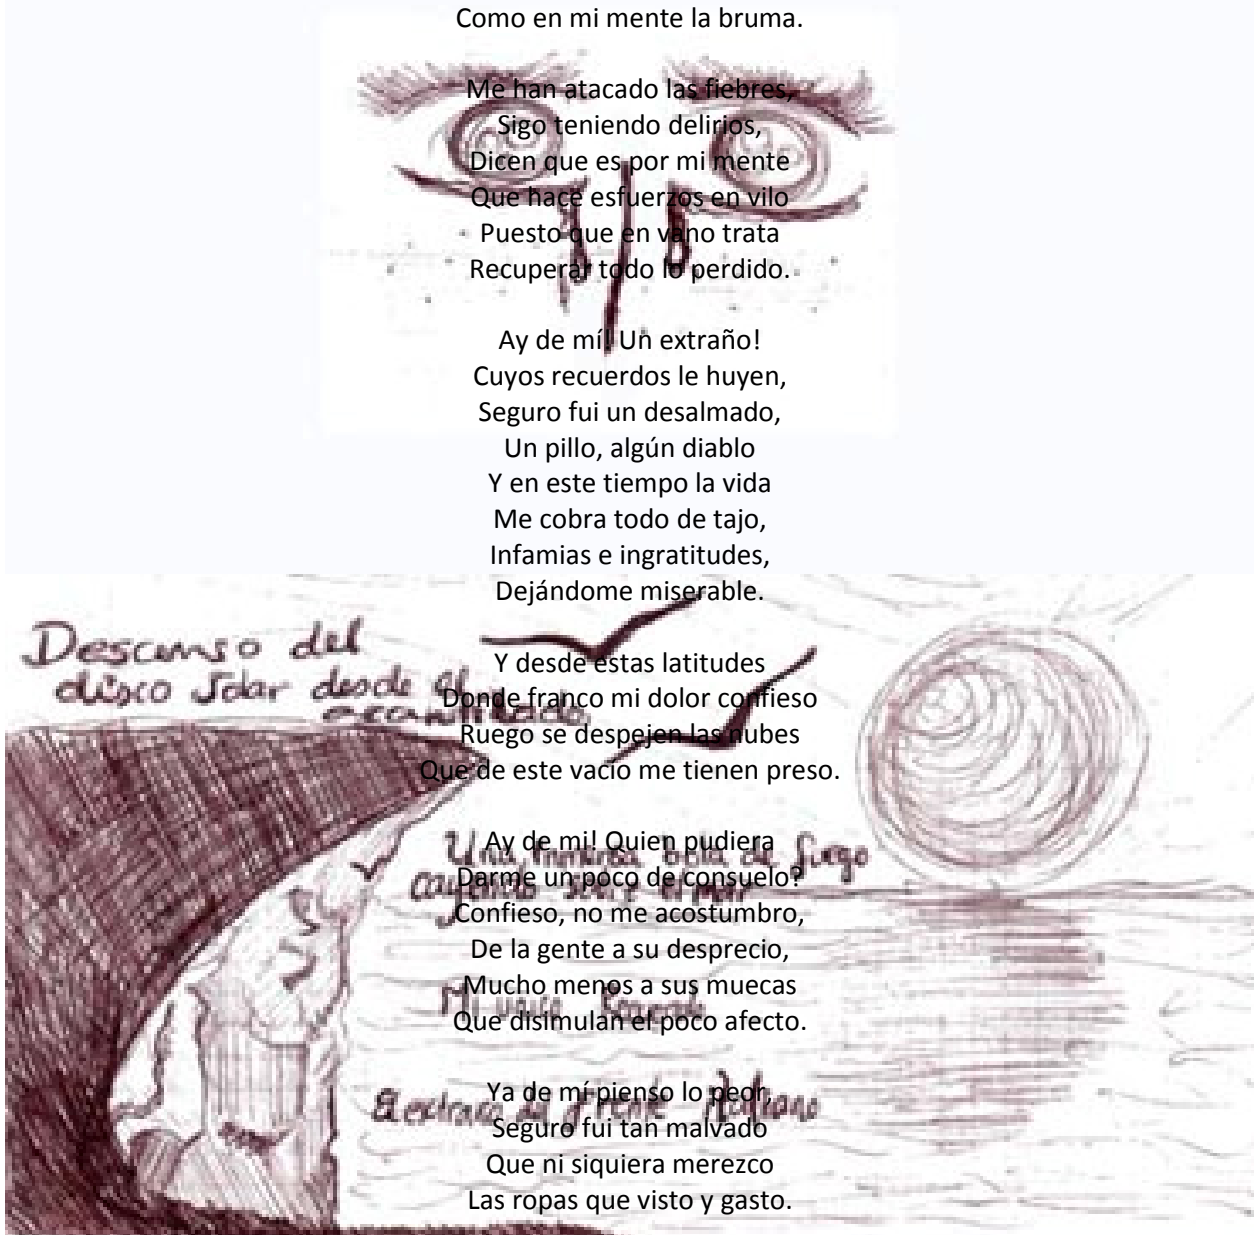 Como en mi mente la bruma.
Me han atacado las fiebres,
Sigo teniendo delirios,
Dicen que es por mi mente
Que hace esfuerzos en vilo
Puesto que en vano trata
Recuperar todo lo perdido.
Ay de mí! Un extraño!
Cuyos recuerdos le huyen,
Seguro fui un desalmado,
Un pillo, algún diablo
Y en este tiempo la vida
Me cobra todo de tajo,
Infamias e ingratitudes,
Dejándome miserable.
Descanso del
disco Solar desde el
acantilado
Y desde estas latitudes
Donde franco mi dolor confieso
Ruego se despejen las nubes
Que de este vacío me tienen preso.
Ay de mi! Quien pudiera
Darme un poco de consuelo?
Confieso, no me acostumbro,
De la gente a su desprecio,
Mucho menos a sus muecas
Que disimulan el poco afecto.
Una inmensa bola de fuego
Ya de mí pienso lo peor,
Seguro fui tan malvado
Que ni siquiera merezco
Las ropas que visto y gasto.